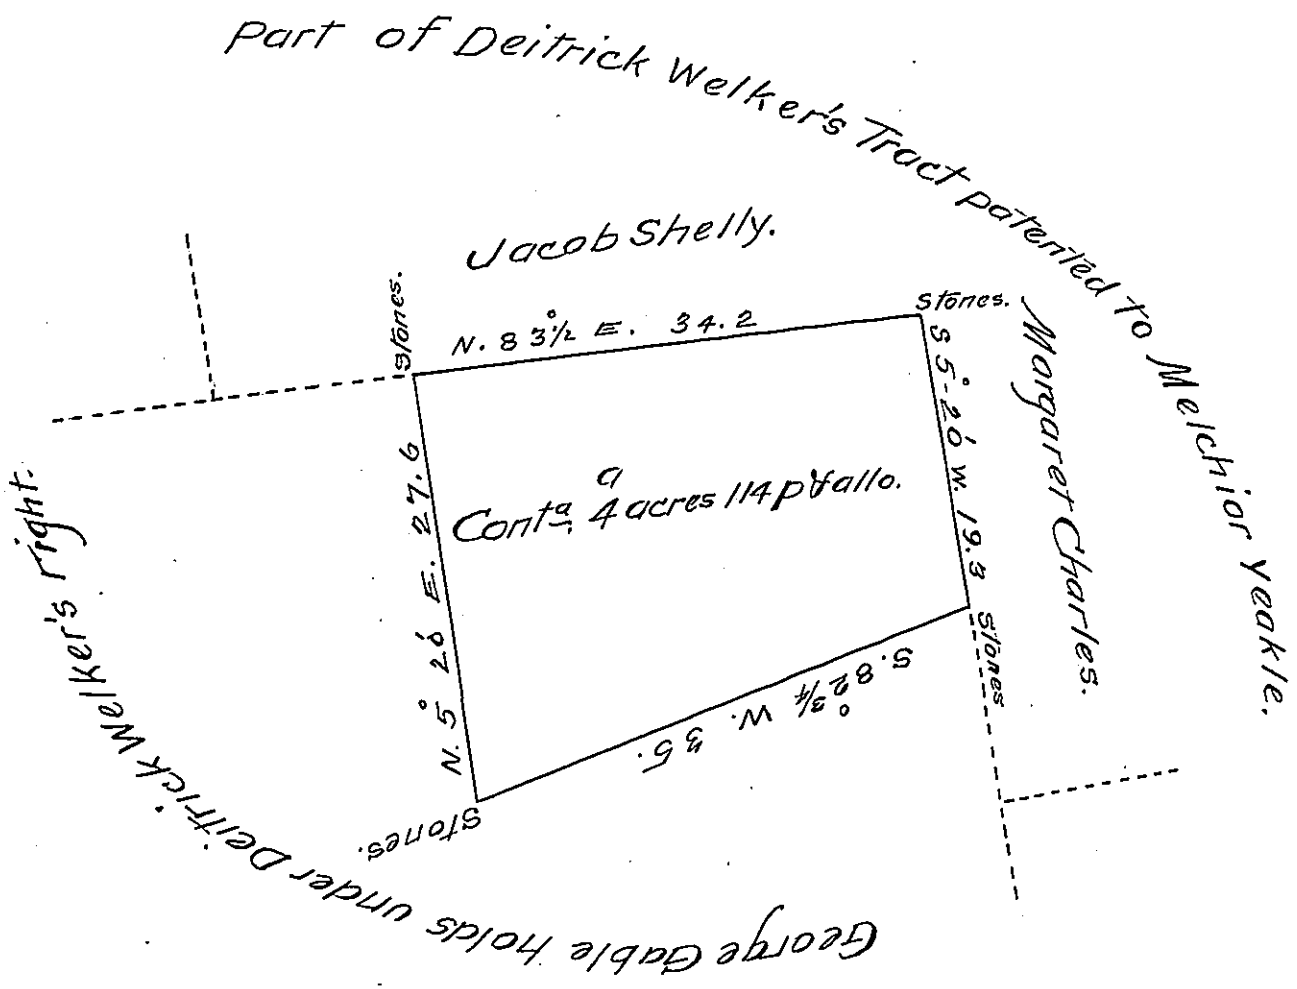 Part of Deitrick Welker's Tract patented to Melchior Yeakle.
Jacob Shelly.
Stones.
N. 83½° E. 34.2
Stones.
S 5°-20' W. 19.3
Margaret Charles.
a
Conta 4 acres 114 p & allo.
N. 5° 20' E. 27.6
Stones
S. 82°¾ W. 35.
Stones.
George Gable holds under Deitrick Welker's right.